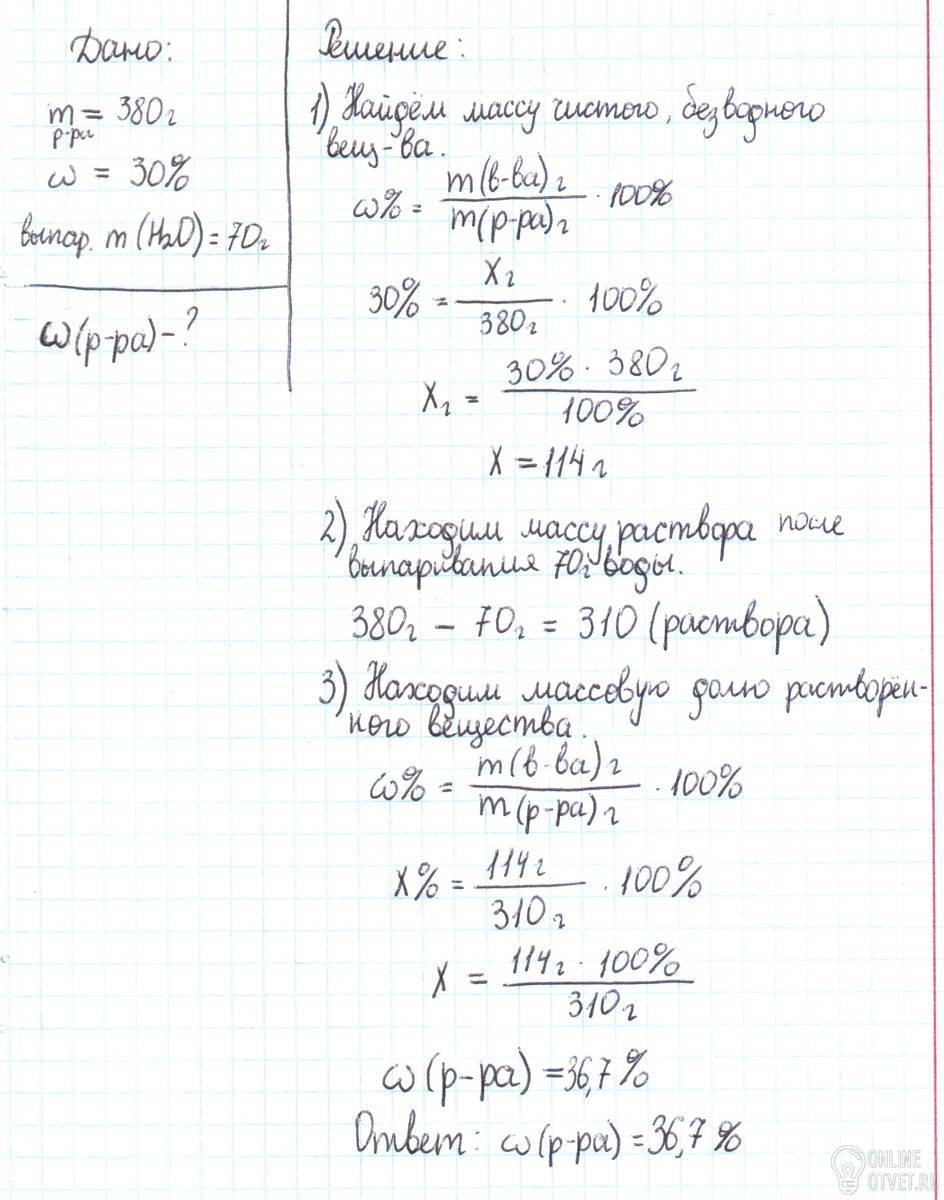 Дано:
m = 380г
р-ра
ω = 30%
выпар. m (H₂O) = 70г
ω(р-ра) - ?
Решение:
1) Найдём массу чистого, безводного
вещ-ва.
ω% = m(в-ва)г / m(р-ра)г · 100%
30% = Xг / 380г · 100%
Xг = 30% · 380г / 100%
X = 114г
2) Находим массу раствора после
выпаривания 70г воды.
380г – 70г = 310 (раствора)
3) Находим массовую долю растворён-
ного вещества.
ω% = m(в-ва)г / m(р-ра)г · 100%
X% = 114г / 310г · 100%
X = 114г · 100% / 310г
ω (р-ра) = 36,7%
Ответ: ω(р-ра) = 36,7%
ONLINE
OTVET.RU